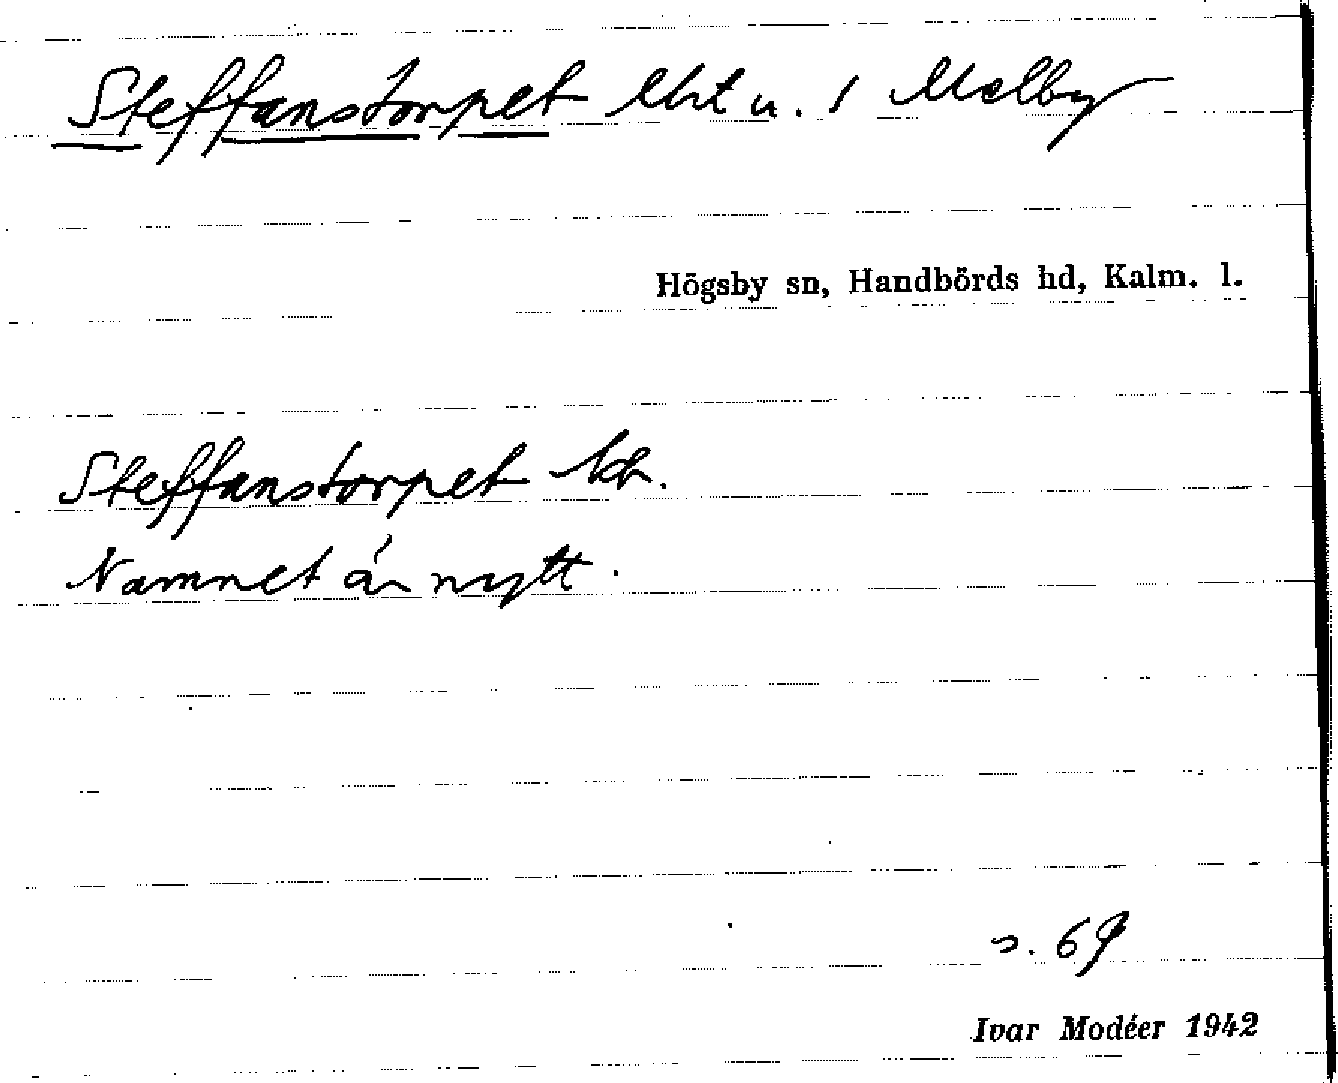 Steffanstorpet lht u. 1 Melby
Högsby sn, Handbörds hd, Kalm. l.
Steffanstorpet
Namnet är nytt.
s. 69
Ivar Modéer 1942